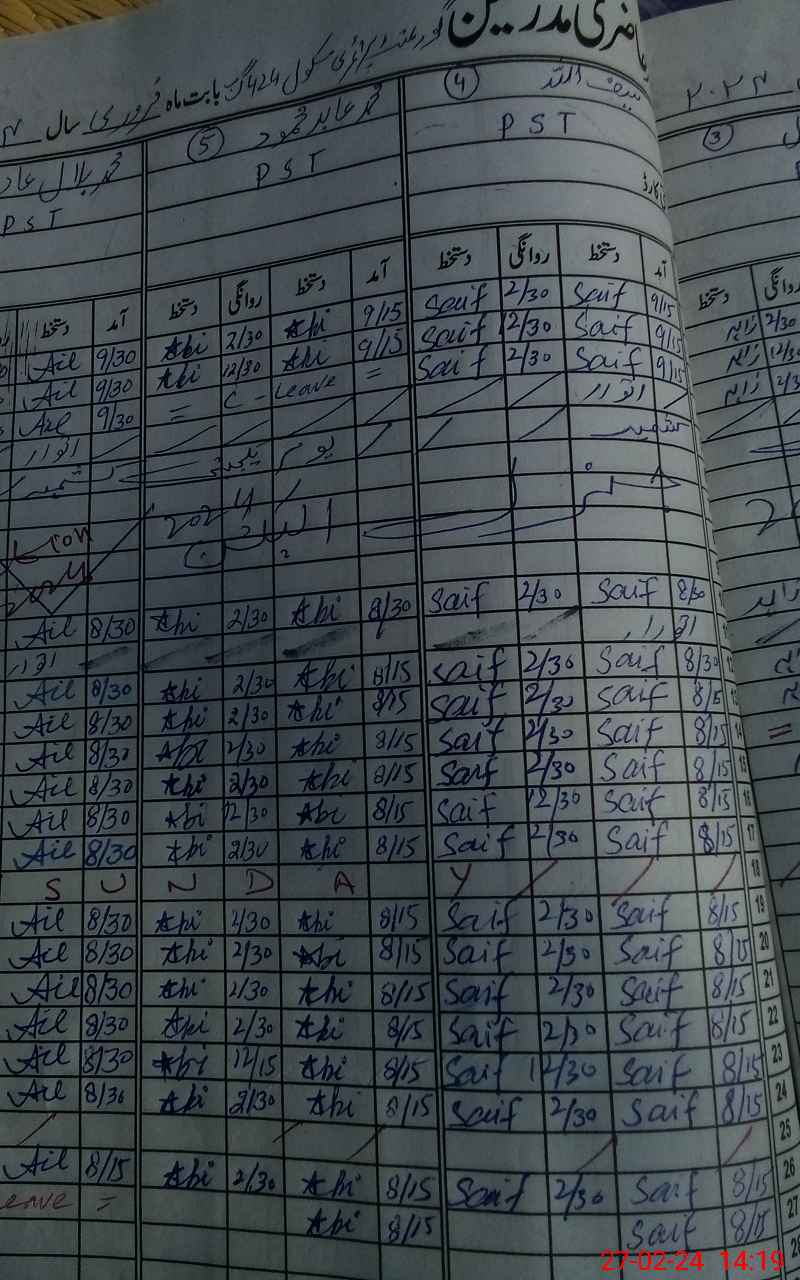 حاضری مدرسین گورنمنٹ پرائمری سکول 424 گ ب بابت ماہ فروری سال
۲۰۲۴
③ ④ سیف اللہ ⑤ محمد عابد محمود محمد بلال
PST PST PST
آمد دستخط روانگی دستخط آمد دستخط روانگی دستخط آمد دستخط
9/15 Saif 2/30 Saif 9/15 Abi 2/30 Abi 9/30 Ail
9/15 Saif 12/30 Saif 9/15 Abi 12/30 Abi 9/30 Ail
9/15 Saif 2/30 Saif = C - Leave = 9/30 Ail
اتوار اتوار
یوم یکجہتی کشمیر
2024 الیکشن
8/30 Saif 2/30 Saif 8/30 Abi 2/30 Abi 8/30 Ail
اتوار اتوار
8/30 Saif 2/30 Saif 8/15 Abi 2/30 Abi 8/30 Ail
13 8/15 Saif 2/30 Saif 8/15 Abi 2/30 Abi 8/30 Ail
14 8/15 Saif 2/30 Saif 8/15 Abi 2/30 Abi 8/30 Ail
15 8/15 Saif 2/30 Saif 8/15 Abi 2/30 Abi 8/30 Ail
16 8/15 Saif 12/30 Saif 8/15 Abi 12/30 Abi 8/30 Ail
17 8/15 Saif 2/30 Saif 8/15 Abi 2/30 Abi 8/30 Ail
18 S U N D A Y
19 8/15 Saif 2/30 Saif 8/15 Abi 2/30 Abi 8/30 Ail
20 8/15 Saif 2/30 Saif 8/15 Abi 2/30 Abi 8/30 Ail
21 8/15 Saif 2/30 Saif 8/15 Abi 2/30 Abi 8/30 Ail
22 8/15 Saif 2/30 Saif 8/15 Abi 2/30 Abi 8/30 Ail
23 8/15 Saif 12/30 Saif 8/15 Abi 12/15 Abi 8/30 Ail
24 8/15 Saif 2/30 Saif 8/15 Abi 2/30 Abi 8/30 Ail
25
26 8/15 Saif 2/30 Saif 8/15 Abi 2/30 Abi 8/15 Ail
27 8/15 Saif 8/15 Abi = eave
28
27-02-24 14:19